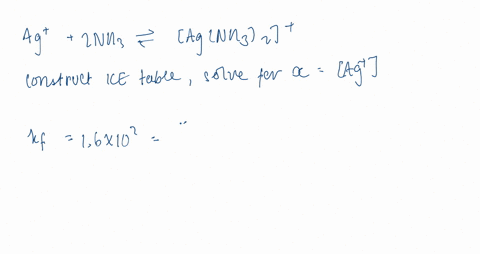 Ag⁺ + 2NH₃ ⇌ [Ag(NH₃)₂]⁺
construct ICE table, solve for x = [Ag⁺]
kf = 1.6×10² =